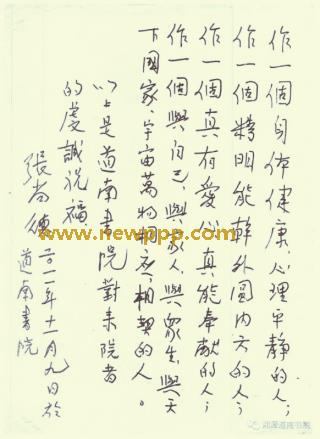 作一個身体健康、心理平静的人；
作一個精明能幹外圓内方的人；
作一個真有愛心真能奉献的人；
作一個與自己、與家人、與眾生、與天
下國家、宇宙萬物相應、相契的人。
以上是道南書院對来院者
的虔誠祝福
張尚德
二〇一一年十一月九日於
道南書院
www.newppp.com